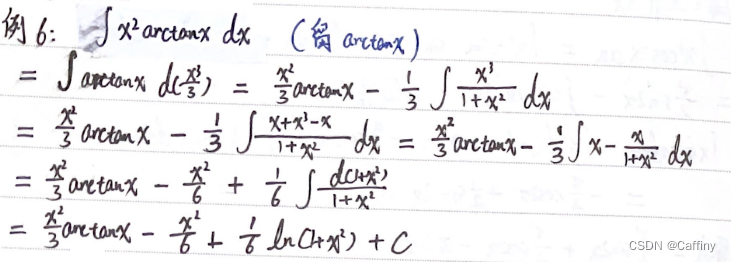 例6: ∫x² arctanx dx (留 arctanx)
= ∫ arctanx d(x³/3) = x²/3 arctanx - 1/3 ∫ x³/(1+x²) dx
= x²/3 arctanx - 1/3 ∫ (x+x³-x)/(1+x²) dx = x²/3 arctanx - 1/3 ∫ x - x/(1+x²) dx
= x²/3 arctanx - x²/6 + 1/6 ∫ d(1+x²)/(1+x²)
= x²/3 arctanx - x²/6 + 1/6 ln(1+x²) + C
CSDN @Caffiny